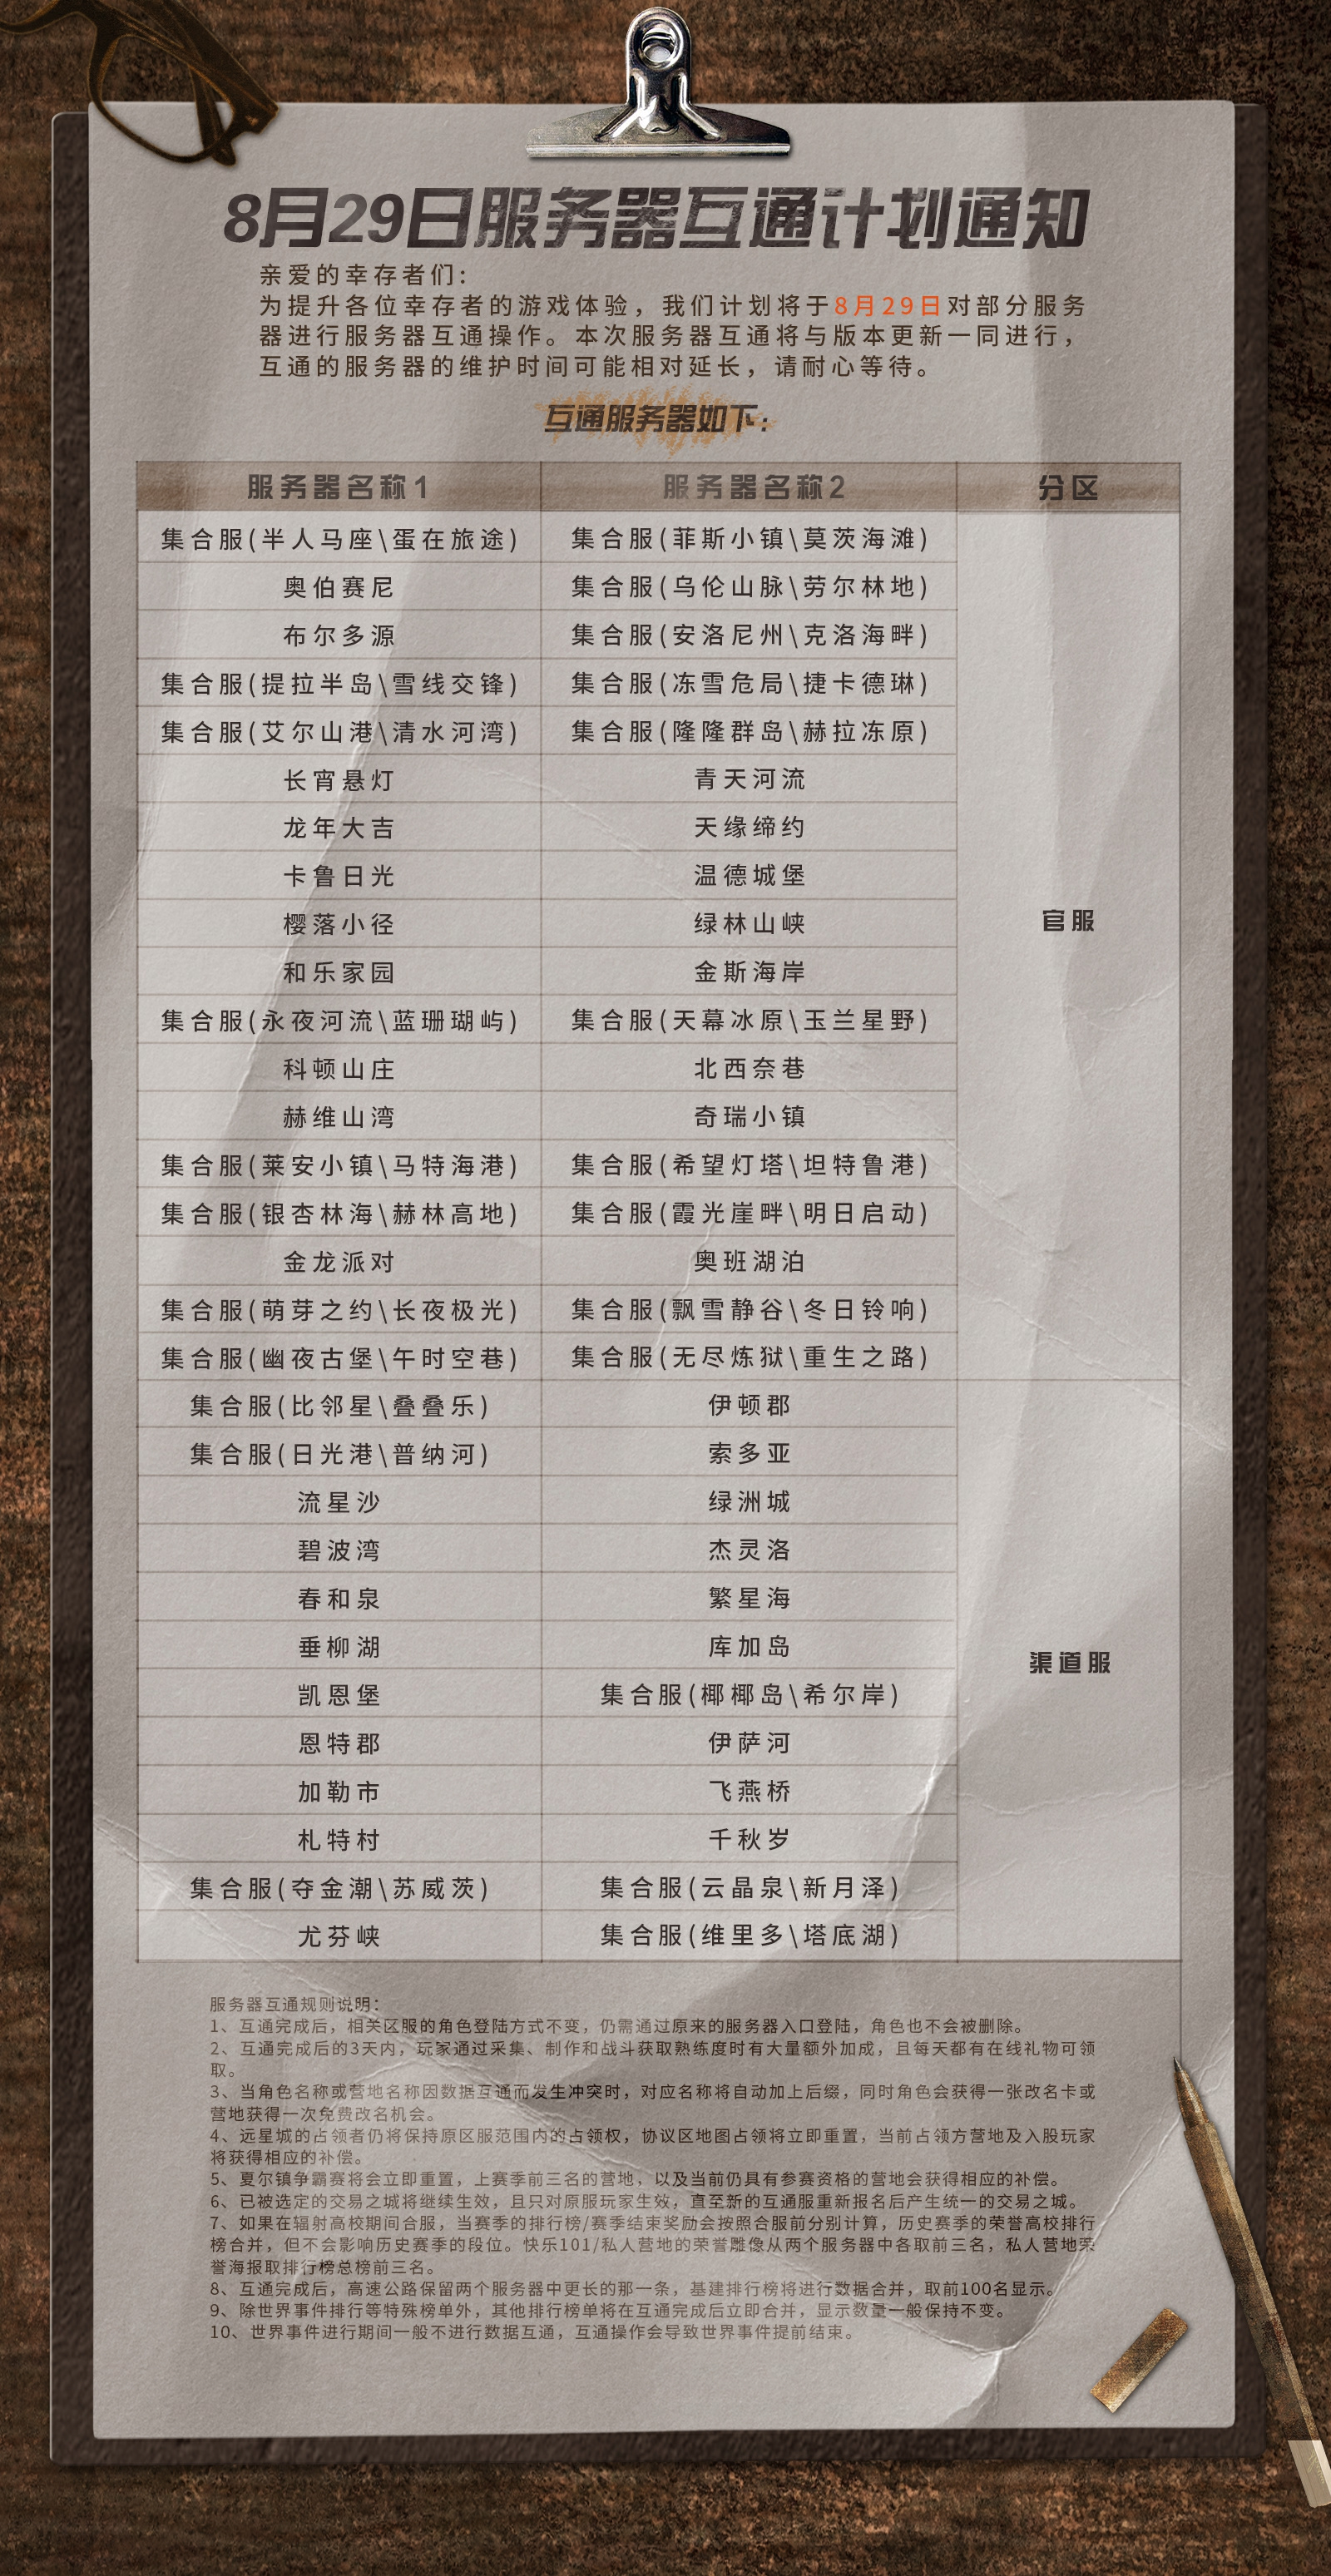 8月29日服务器互通计划通知
亲爱的幸存者们:
为提升各位幸存者的游戏体验，我们计划将于8月29日对部分服务
器进行服务器互通操作。本次服务器互通将与版本更新一同进行，
互通的服务器的维护时间可能相对延长，请耐心等待。
互通服务器如下:
服务器名称1 服务器名称2 分区
集合服(半人马座\蛋在旅途) 集合服(菲斯小镇\莫茨海滩)
奥伯赛尼 集合服(乌伦山脉\劳尔林地)
布尔多源 集合服(安洛尼州\克洛海畔)
集合服(提拉半岛\雪线交锋) 集合服(冻雪危局\捷卡德琳)
集合服(艾尔山港\清水河湾) 集合服(隆隆群岛\赫拉冻原)
长宵悬灯 青天河流
龙年大吉 天缘缔约
卡鲁日光 温德城堡
樱落小径 绿林山峡
官服
和乐家园 金斯海岸
集合服(永夜河流\蓝珊瑚屿) 集合服(天幕冰原\玉兰星野)
科顿山庄 北西奈巷
赫维山湾 奇瑞小镇
集合服(莱安小镇\马特海港) 集合服(希望灯塔\坦特鲁港)
集合服(银杏林海\赫林高地) 集合服(霞光崖畔\明日启动)
金龙派对 奥班湖泊
集合服(萌芽之约\长夜极光) 集合服(飘雪静谷\冬日铃响)
集合服(幽夜古堡\午时空巷) 集合服(无尽炼狱\重生之路)
集合服(比邻星\叠叠乐) 伊顿郡
集合服(日光港\普纳河) 索多亚
流星沙 绿洲城
碧波湾 杰灵洛
春和泉 繁星海
垂柳湖 库加岛
渠道服
凯恩堡 集合服(椰椰岛\希尔岸)
恩特郡 伊萨河
加勒市 飞燕桥
札特村 千秋岁
集合服(夺金潮\苏威茨) 集合服(云晶泉\新月泽)
尤芬峡 集合服(维里多\塔底湖)
服务器互通规则说明：
1、互通完成后，相关区服的角色登陆方式不变，仍需通过原来的服务器入口登陆，角色也不会被删除。
2、互通完成后的3天内，玩家通过采集、制作和战斗获取熟练度时有大量额外加成，且每天都有在线礼物可领
取。
3、当角色名称或营地名称因数据互通而发生冲突时，对应名称将自动加上后缀，同时角色会获得一张改名卡或
营地获得一次免费改名机会。
4、远星城的占领者仍将保持原区服范围内的占领权，协议区地图占领将立即重置，当前占领方营地及入股玩家
将获得相应的补偿。
5、夏尔镇争霸赛将会立即重置，上赛季前三名的营地，以及当前仍具有参赛资格的营地会获得相应的补偿。
6、已被选定的交易之城将继续生效，且只对原服玩家生效，直至新的互通服重新报名后产生统一的交易之城。
7、如果在辐射高校期间合服，当赛季的排行榜/赛季结束奖励会按照合服前分别计算，历史赛季的荣誉高校排行
榜合并，但不会影响历史赛季的段位。快乐101/私人营地的荣誉雕像从两个服务器中各取前三名，私人营地荣
誉海报取排行榜总榜前三名。
8、互通完成后，高速公路保留两个服务器中更长的那一条，基建排行榜将进行数据合并，取前100名显示。
9、除世界事件排行等特殊榜单外，其他排行榜单将在互通完成后立即合并，显示数量一般保持不变。
10、世界事件进行期间一般不进行数据互通，互通操作会导致世界事件提前结束。